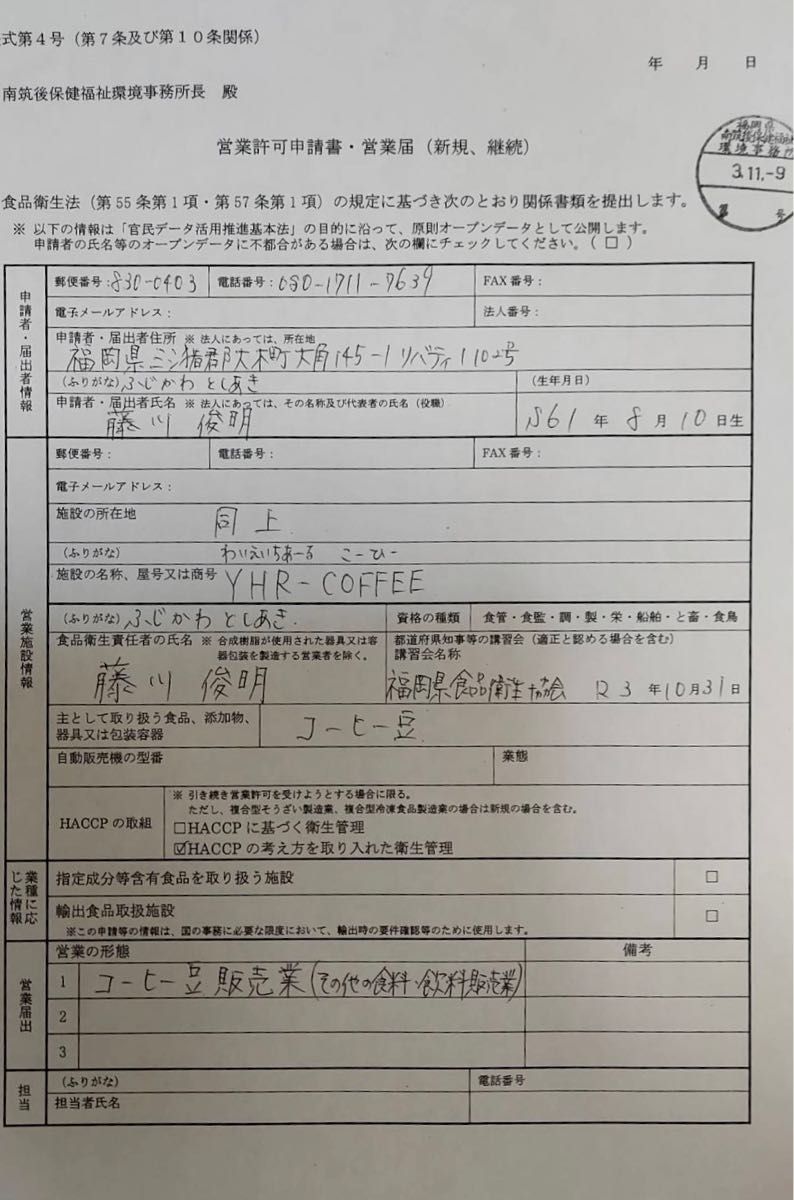 式第4号（第7条及び第10条関係）
年 月 日
南筑後保健福祉環境事務所長 殿
営業許可申請書・営業届（新規、継続）
福岡県
南筑後保健福祉
環境事務所
3.11.-9
第 号
食品衛生法（第55条第1項・第57条第1項）の規定に基づき次のとおり関係書類を提出します。
※ 以下の情報は「官民データ活用推進基本法」の目的に沿って、原則オープンデータとして公開します。
申請者の氏名等のオープンデータに不都合がある場合は、次の欄にチェックしてください。（ □ ）
申請者・届出者情報
郵便番号：830-0403 電話番号：080-1711-7639 FAX番号：
電子メールアドレス： 法人番号：
申請者・届出者住所 ※ 法人にあっては、所在地
福岡県三潴郡大木町大角145-1 リバティ1 102号
（ふりがな）ふじかわ としあき （生年月日）
申請者・届出者氏名 ※ 法人にあっては、その名称及び代表者の氏名（役職）
藤川 俊明 S61 年 8 月 10 日生
営業施設情報
郵便番号： 電話番号： FAX番号：
電子メールアドレス：
施設の所在地
同上
（ふりがな） わいえいちあーる こーひー
施設の名称、屋号又は商号 YHR-COFFEE
（ふりがな）ふじかわ としあき 資格の種類 食管・食監・調・製・栄・船舶・と畜・食鳥
食品衛生責任者の氏名 ※ 合成樹脂が使用された器具又は容器包装を製造する営業者を除く。
都道府県知事等の講習会（適正と認める場合を含む）
講習会名称
藤川 俊明 福岡県食品衛生協会 R3 年 10 月 31 日
主として取り扱う食品、添加物、
器具又は包装容器 コーヒー豆
自動販売機の型番 業態
HACCPの取組
※ 引き続き営業許可を受けようとする場合に限る。
ただし、複合型そうざい製造業、複合型冷凍食品製造業の場合は新規の場合を含む。
□HACCPに基づく衛生管理
☑HACCPの考え方を取り入れた衛生管理
業種に応じた情報
指定成分等含有食品を取り扱う施設 □
輸出食品取扱施設 □
※この申請等の情報は、国の事務に必要な限度において、輸出時の要件確認等のために使用します。
営業届出
営業の形態 備考
1 コーヒー豆販売業（その他の食料・飲料販売業）
2
3
担当
（ふりがな） 電話番号
担当者氏名